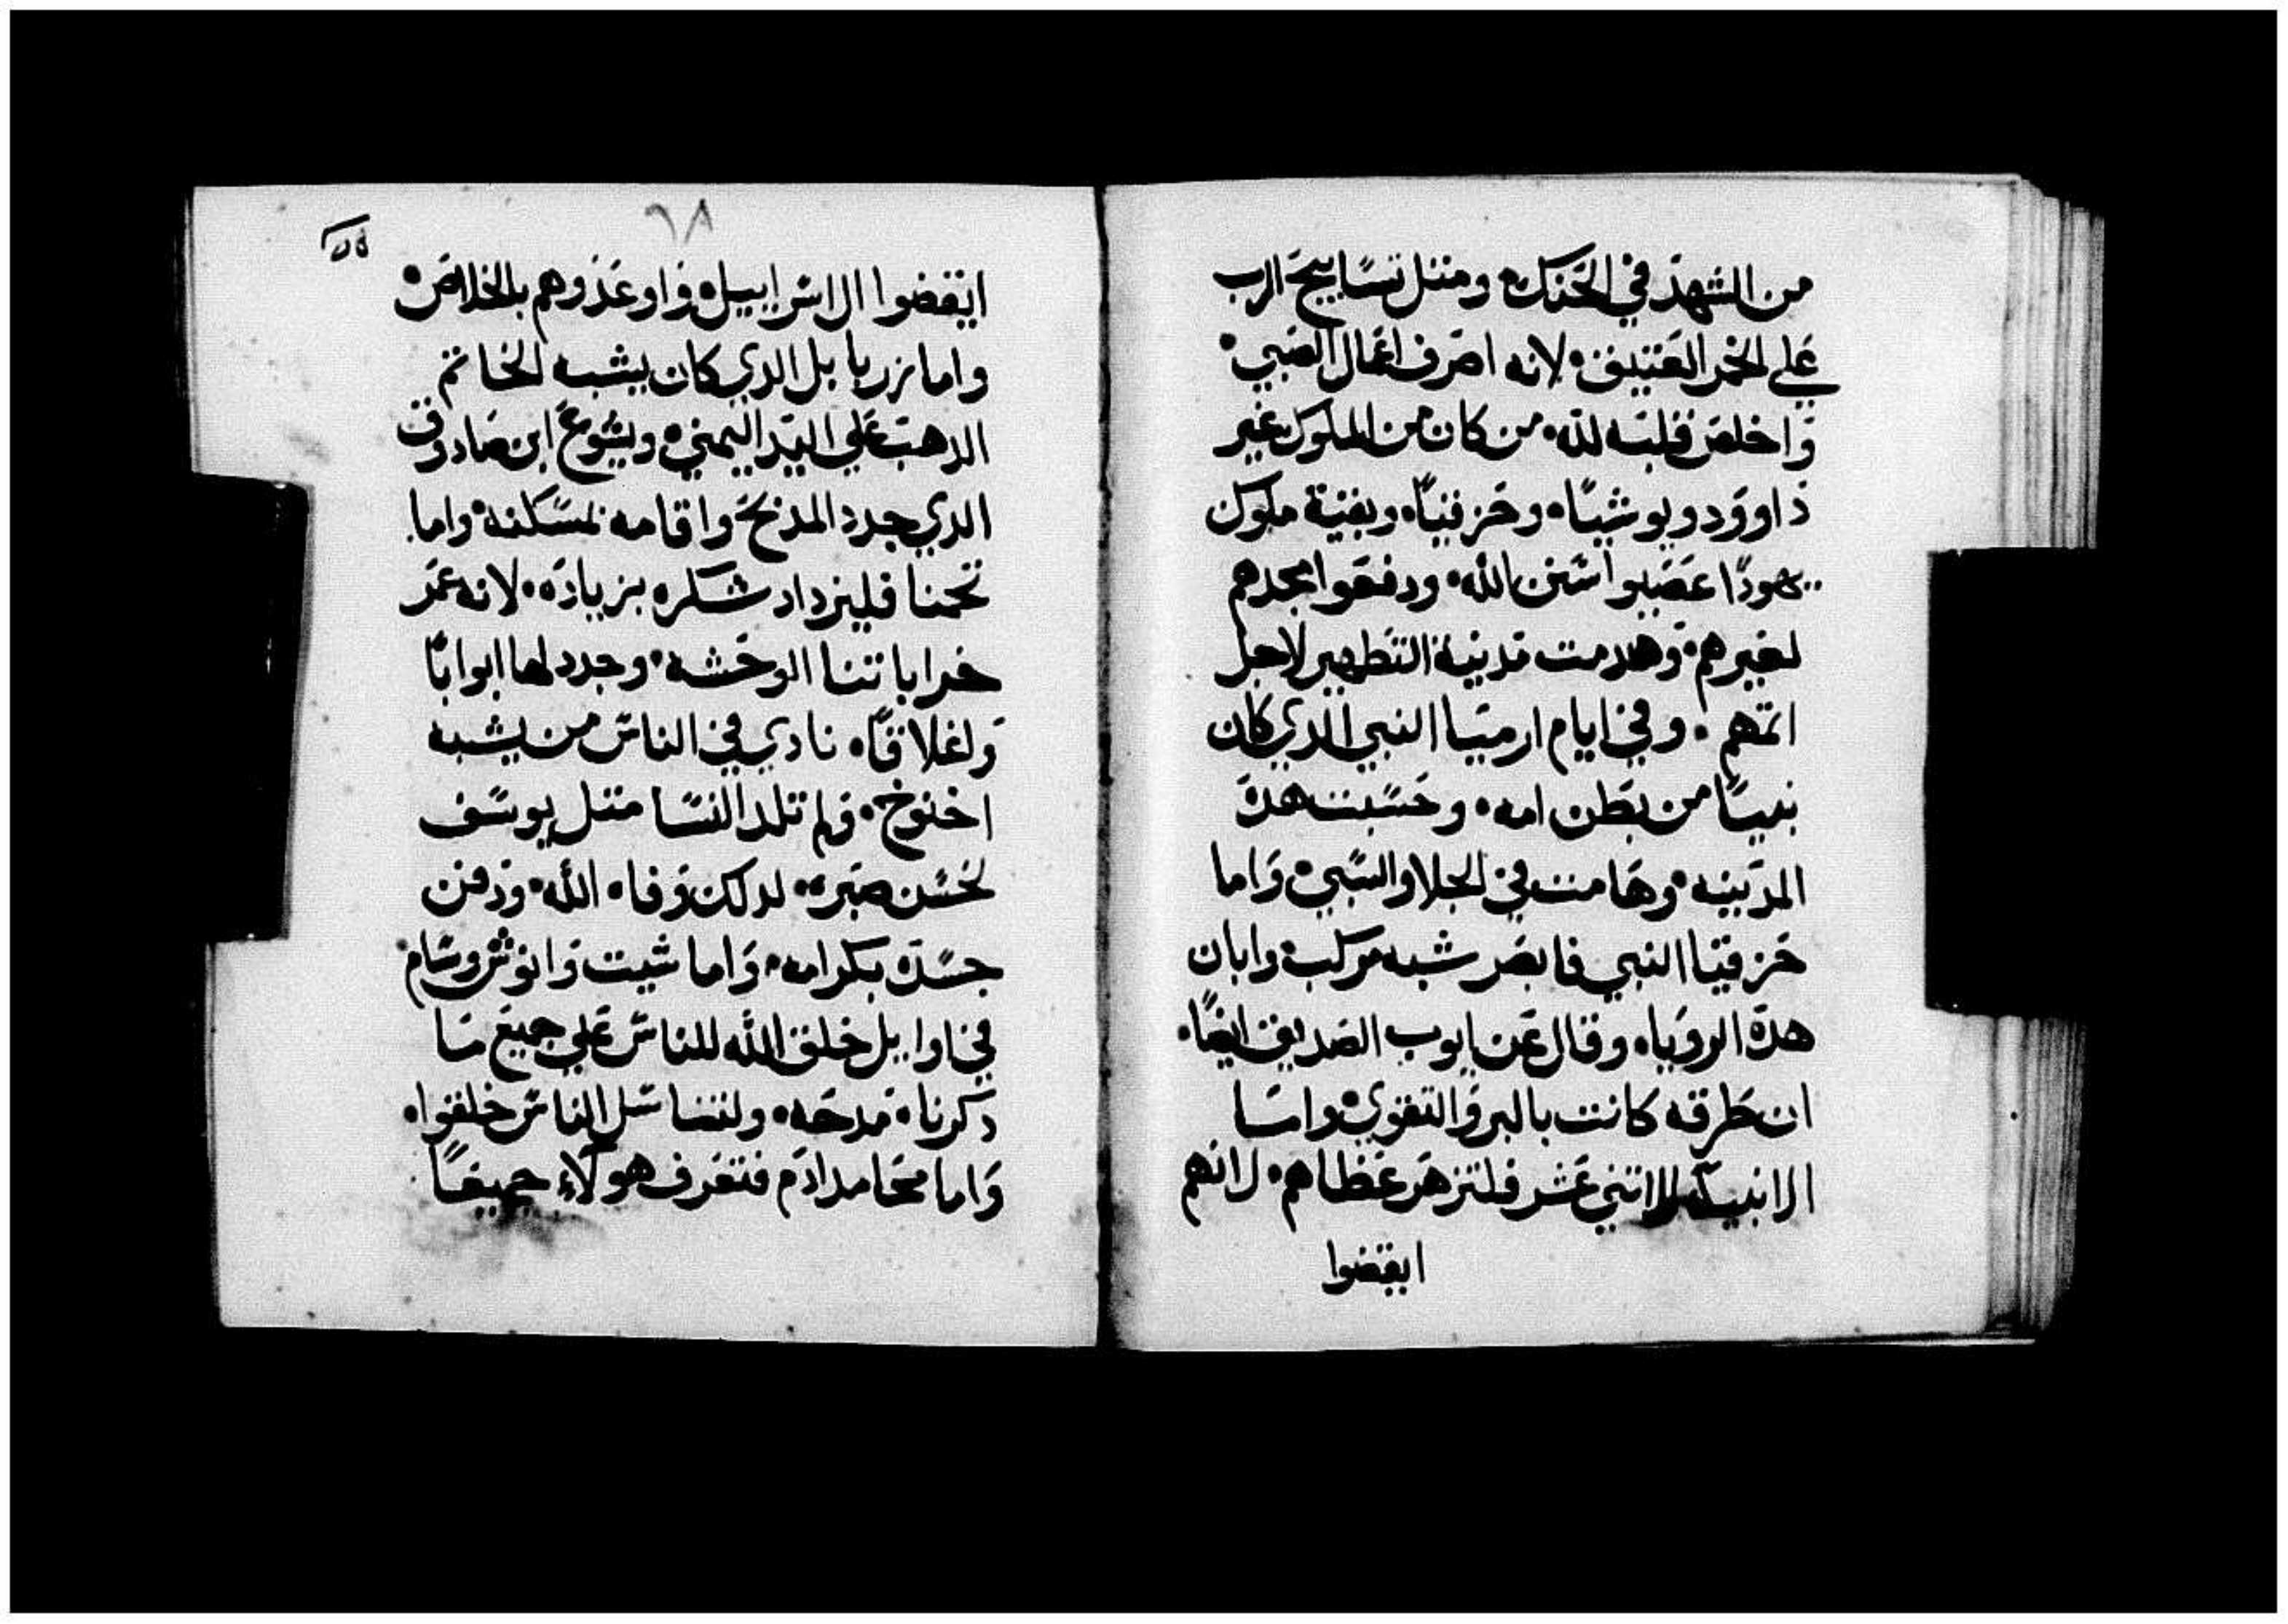 من الشهد في الحنك ومتل تسابيح الرب
علي الخمر العتيق لانه اصرف اعمال الصبي
واخلص قلبه لله من كان من الملوك غير
داوود ويوشيا وحزقيا وبقية ملوك
يهودا عصيوا سنن الله ودفعوا مجدهم
لغيرهم وهدمت مدينة التطهير لاجل
اتمهم وفي ايام ارميا النبي الدي كان
نبيا من بطن امه وحسبت هده
المدينه وهامت في الجلا والسبي واما
حزقيا النبي فابصر شبه مركب وابان
هدة الرويا وقال عن ايوب الصديق ايضا
ان طرقه كانت بالبر والتقوي واما
الانبيا الاتني عشر فلتزهر عظاهم لانهم
ايقضوا
٦٨
ايقضوا ال اسراييل واوعدوهم بالخلاص
واما زربابل الدي كان يشبه الخاتم
الدهب علي اليد اليمني ويشوع ابن صادوق
الدي جدد المدبح واقامه لمسكنه واما
نحمنا فليزداد شكره بزياده لانه عمر
خراباتنا الوحشه وجدد لها ابوابا
واغلاقا نادي في الناس من يشبه
اخنوخ ولم تلد النسا متل يوسف
لحسن صبره لدلك وفاه الله ودفن
جسده بكرامه واما شيت وانوش وسام
في اوايل خلق الله للناس علي جميع ما
دكرنا مدحه ولتنا سل الناس خلقوا
واما محامد ادم فتعرف هولاء جميعا